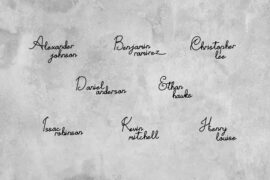 Alexander
johnson
Benjamin
ramirez
Christopher
lee
Daniel
anderson
Ethan
hawke
Isaac
robinson
Kevin
mitchell
Henry
louise